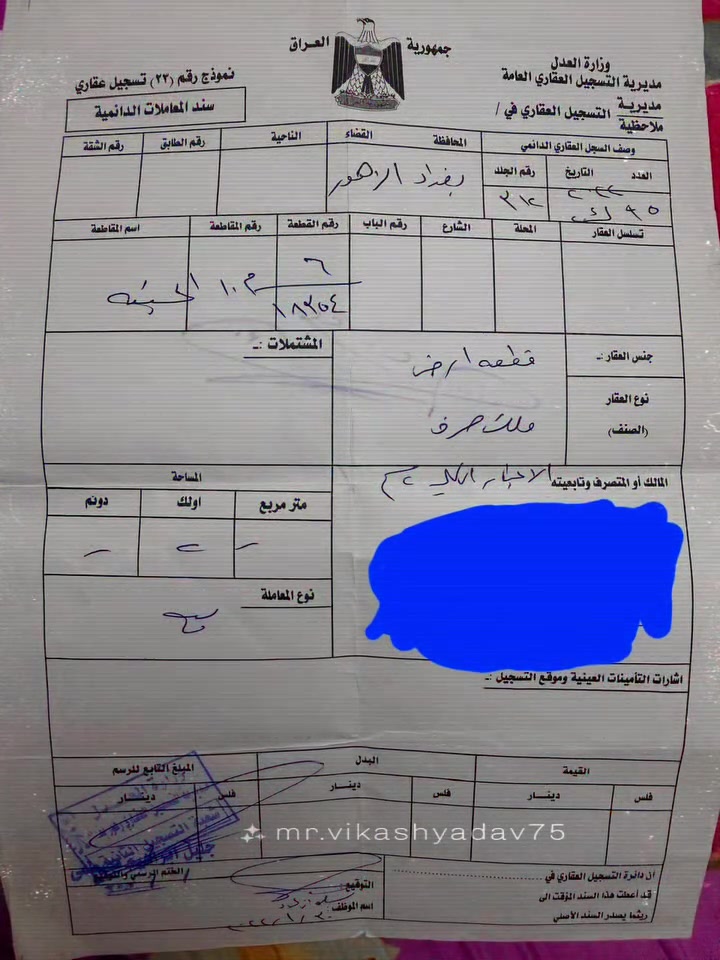 جمهورية العراق
وزارة العدل
مديرية التسجيل العقاري العامة
مديرية
ملاحظية
التسجيل العقاري في /
نموذج رقم (٢٢) تسجيل عقاري
سند المعاملات الدائمية
وصف السجل العقاري الدائمي
المحافظة
القضاء
الناحية
رقم الطابق
رقم الشقة
العدد
التاريخ
رقم الجلد
بغداد الزهور
٩٥
٢٠٢٢
٣١٢
تسلسل العقار
المحلة
الشارع
رقم الباب
رقم القطعة
رقم المقاطعة
اسم المقاطعة
٦
١٨٣٥٤
م ١٠
الحسينية
جنس العقار :ـ
قطعه ارض
المشتملات :ـ
نوع العقار
(الصنف)
ملك صرف
المالك أو المتصرف وتابعيته
المساحة
متر مربع
اولك
دونم
ـ
٢
ـ
نوع المعاملة
بيع
اشارات التأمينات العينية وموقع التسجيل :ـ
القيمة
البدل
المبلغ التابع للرسم
فلس
دينــار
فلس
دينــار
فلس
دينــار
mr.vikashyadav75
أن دائرة التسجيل العقاري في
قد أعطت هذا السند المؤقت الى
ريثما يصدر السند الأصلي
التوقيع
اسم الموظف
الختم الرسمي والتوقيع